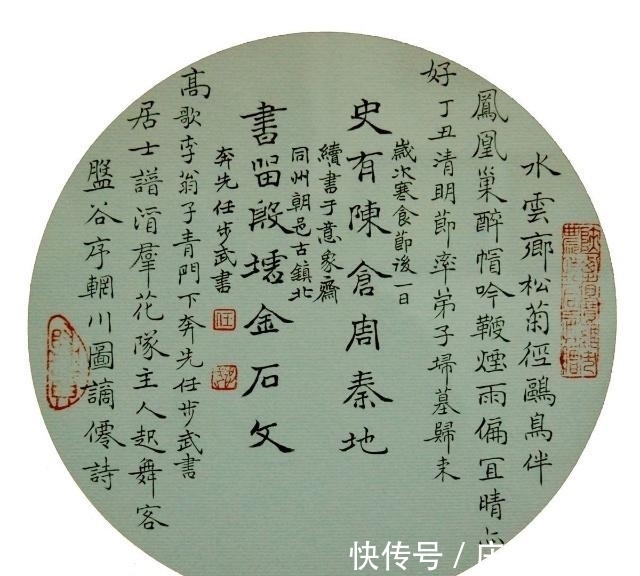 水雲鄉松菊徑鷗鳥伴
鳳凰巢醉帽吟鞭煙雨偏宜晴亦
好丁丑清明節率弟子埽墓歸来
盤谷序輞川圖謫僊詩
居士譜酒羣花隊主人起舞客
高歌李翁子青門下奔先任步武書
史有陳倉周秦地
書留殷墟金石文
歲次寒食節後一日
續書于意象齋
同州朝邑古鎮北
奔先任步武書
快传号 /